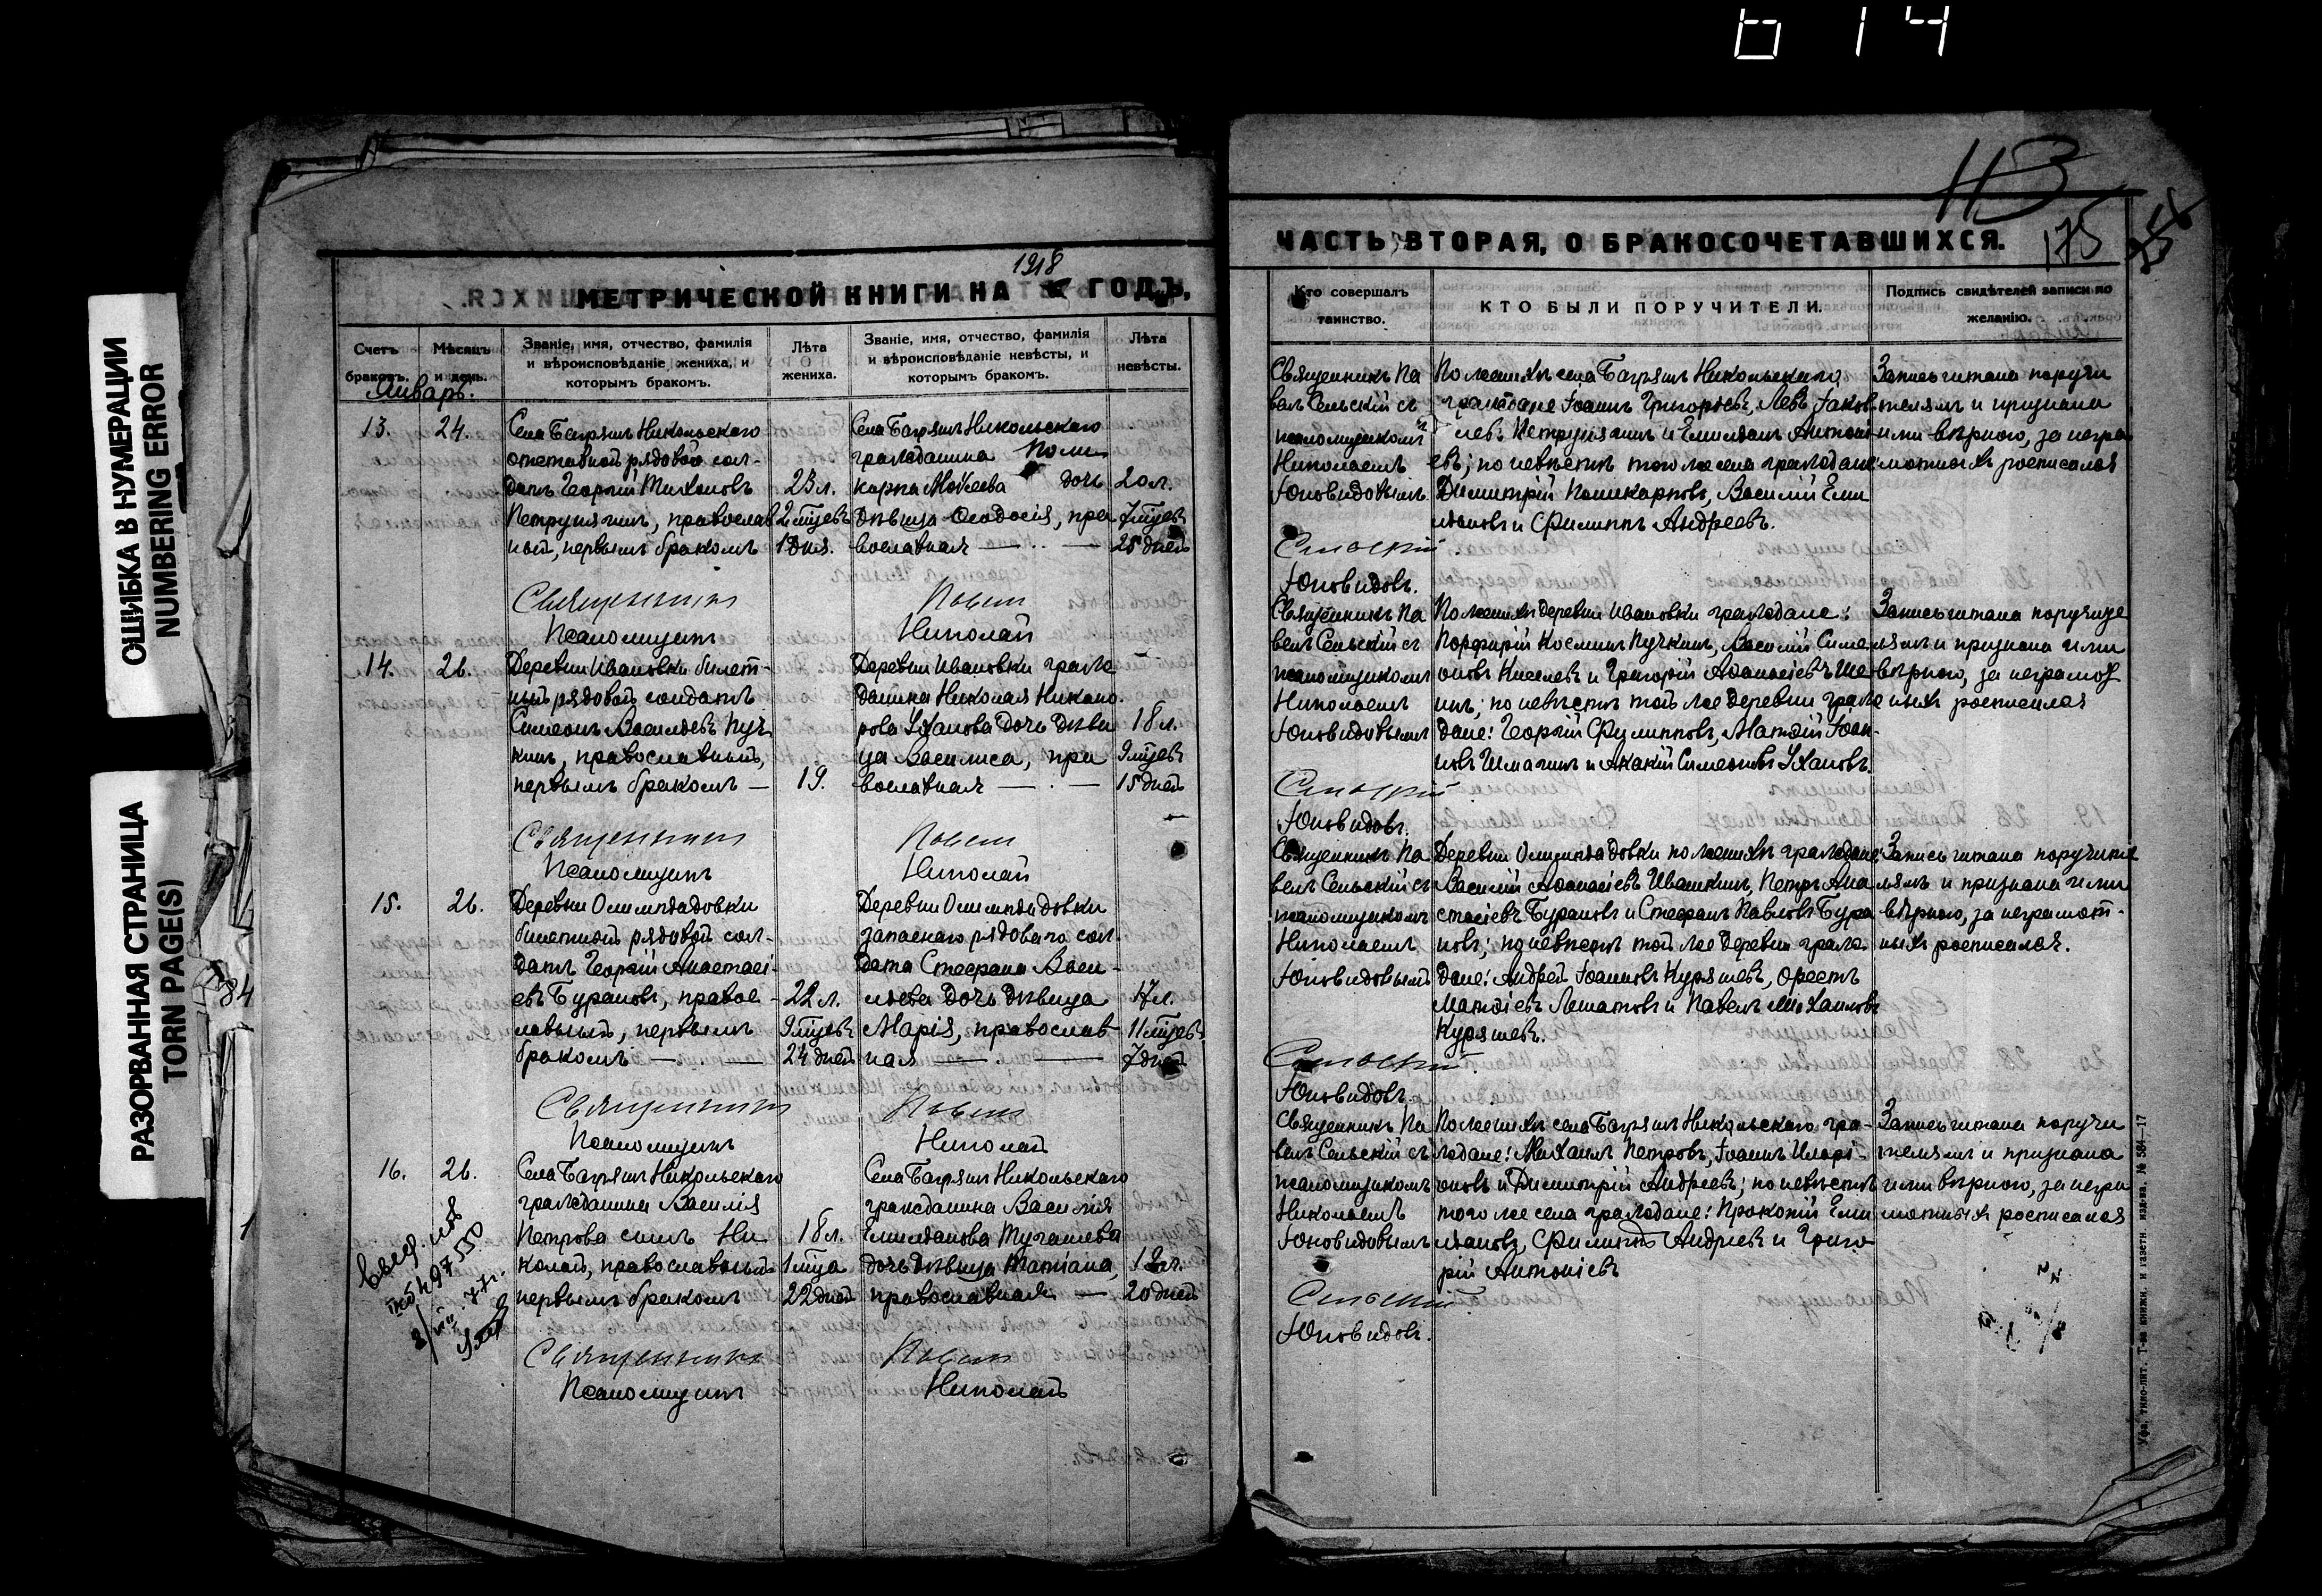 614
113
175
ОШИБКА В НУМЕРАЦИИ
NUMBERING ERROR
РАЗОРВАННАЯ СТРАНИЦА
TORN PAGE(S)
84
1
1918
МЕТРИЧЕСКОЙ КНИГИ НА ГОДЪ,
Счетъ браковъ.
Мѣсяцъ и день.
Званіе, имя, отчество, фамилія
и вѣроисповѣданіе жениха, и
которымъ бракомъ.
Лѣта
жениха.
Званіе, имя, отчество, фамилія
и вѣроисповѣданіе невѣсты, и
которымъ бракомъ.
Лѣта
невѣсты.
Январь.
13.
24.
Села Багряшъ Никольскаго
отставной рядовой сол-
датъ Георгій Тихоновъ
Петрунячинъ, православ
ный, первымъ бракомъ
23 л.
2 мѣсяцевъ
1 дня.
Села Багряшъ Никольскаго
гражданина Поли
карпа Мокеева дочь
дѣвица Ѳеодосія, пра
вославная
20 л.
7 мѣсяцевъ
25 дней
Священникъ Павелъ
Псаломщикъ Николай
14.
26.
Деревни Ивановки билет-
ный рядовой солдатъ
Симеонъ Васильевъ Пуч
кинъ, православный,
первымъ бракомъ —
19.
Деревни Ивановки граж
данина Николая Никано
рова Уханова дочь дѣви
ца Василиса, пра
вославная
18 л.
9 мѣсяцевъ
15 дней
Священникъ Павелъ
Псаломщикъ Николай
15.
26.
Деревни Олимпіадовки
билетный рядовой сол-
датъ Георгій Анастасі-
евъ Бурановъ, правос-
лавный, первымъ
бракомъ —
22 л.
9 мѣсяцевъ
24 дней
Деревни Олимпіадовки
запаснаго рядоваго сол-
дата Стефана Васи-
льева дочь дѣвица
Марія, православ-
ная
17 л.
11 мѣсяцевъ
7 дней
Священникъ Павелъ
Псаломщикъ Николай
16.
26.
Села Багряшъ Никольскаго
гражданина Василія
Петрова сынъ Ни
колай, православный
первымъ бракомъ
18 л.
1 мѣсяца
22 дней
Села Багряшъ Никольскаго
гражданина Василія
Емиліанова Тугашева
дочь дѣвица Татіана,
православная —
18 л.
20 дней
Священникъ Павелъ
Псаломщикъ Николай
ЧАСТЬ ВТОРАЯ, О БРАКОСОЧЕТАВШИХСЯ.
Кто совершалъ
таинство.
КТО БЫЛИ ПОРУЧИТЕЛИ.
Подпись свидѣтелей записи по
желанію.
Священникъ Па
велъ Сельскій съ
псаломщикомъ
Николаемъ
Юновидовымъ
По женихѣ села Багряшъ Никольскаго
граждане Іоаннъ Григорьевъ, Левъ Іаков-
левъ Петрунячинъ и Емиліанъ Антоні-
евъ; по невѣстѣ того же села граждане:
Димитрій Поликарповъ, Василій Еми
ліановъ и Филиппъ Андреевъ.
Запись читана поручи
телямъ и признана
ими вѣрною, за негра
мотныхъ росписался
Сельскій
Юновидовъ.
Священникъ Па
велъ Сельскій съ
псаломщикомъ
Николаемъ
Юновидовымъ
По женихѣ деревни Ивановки граждане:
Порфирій Косминъ Пучкинъ, Василій Симе
оновъ Киселевъ и Григорій Аѳанасіевъ Ше-
инъ; по невѣстѣ той же деревни граж
дане: Георгій Филипповъ, Матѳій Іоан-
новъ Шмагинъ и Акакій Симеоновъ Ухановъ.
Запись читана поручите
лямъ и признана ими
вѣрною, за неграмот
ныхъ росписался
Сельскій
Юновидовъ.
Священникъ Па
велъ Сельскій съ
псаломщикомъ
Николаемъ
Юновидовымъ
Деревни Олимпіадовки по женихѣ граждане:
Василій Аѳанасіевъ Ивашкинъ, Петръ Ана
стасіевъ Бурановъ и Стефанъ Павловъ Бура
новъ; по невѣстѣ той же деревни граж-
дане: Андрей Іоанновъ Куряшевъ, Орестъ
Матѳіевъ Лошатовъ и Павелъ Михаиловъ
Куряшевъ.
Запись читана поручите
лямъ и признана ими
вѣрною, за неграмот-
ныхъ росписался.
Сельскій
Юновидовъ.
Священникъ Па
велъ Сельскій съ
псаломщикомъ
Николаемъ
Юновидовымъ
По женихѣ села Багряшъ Никольскаго гра-
ждане: Михаилъ Петровъ, Іоаннъ Иларі-
оновъ и Димитрій Андреевъ; по невѣстѣ
того же села граждане: Прокопій Еми
ліановъ, Филиппъ Андреевъ и Григо
рій Антоніевъ
Запись читана поручи
телямъ и признана
ими вѣрною, за негра
мотныхъ росписался
Сельскій
Юновидовъ.